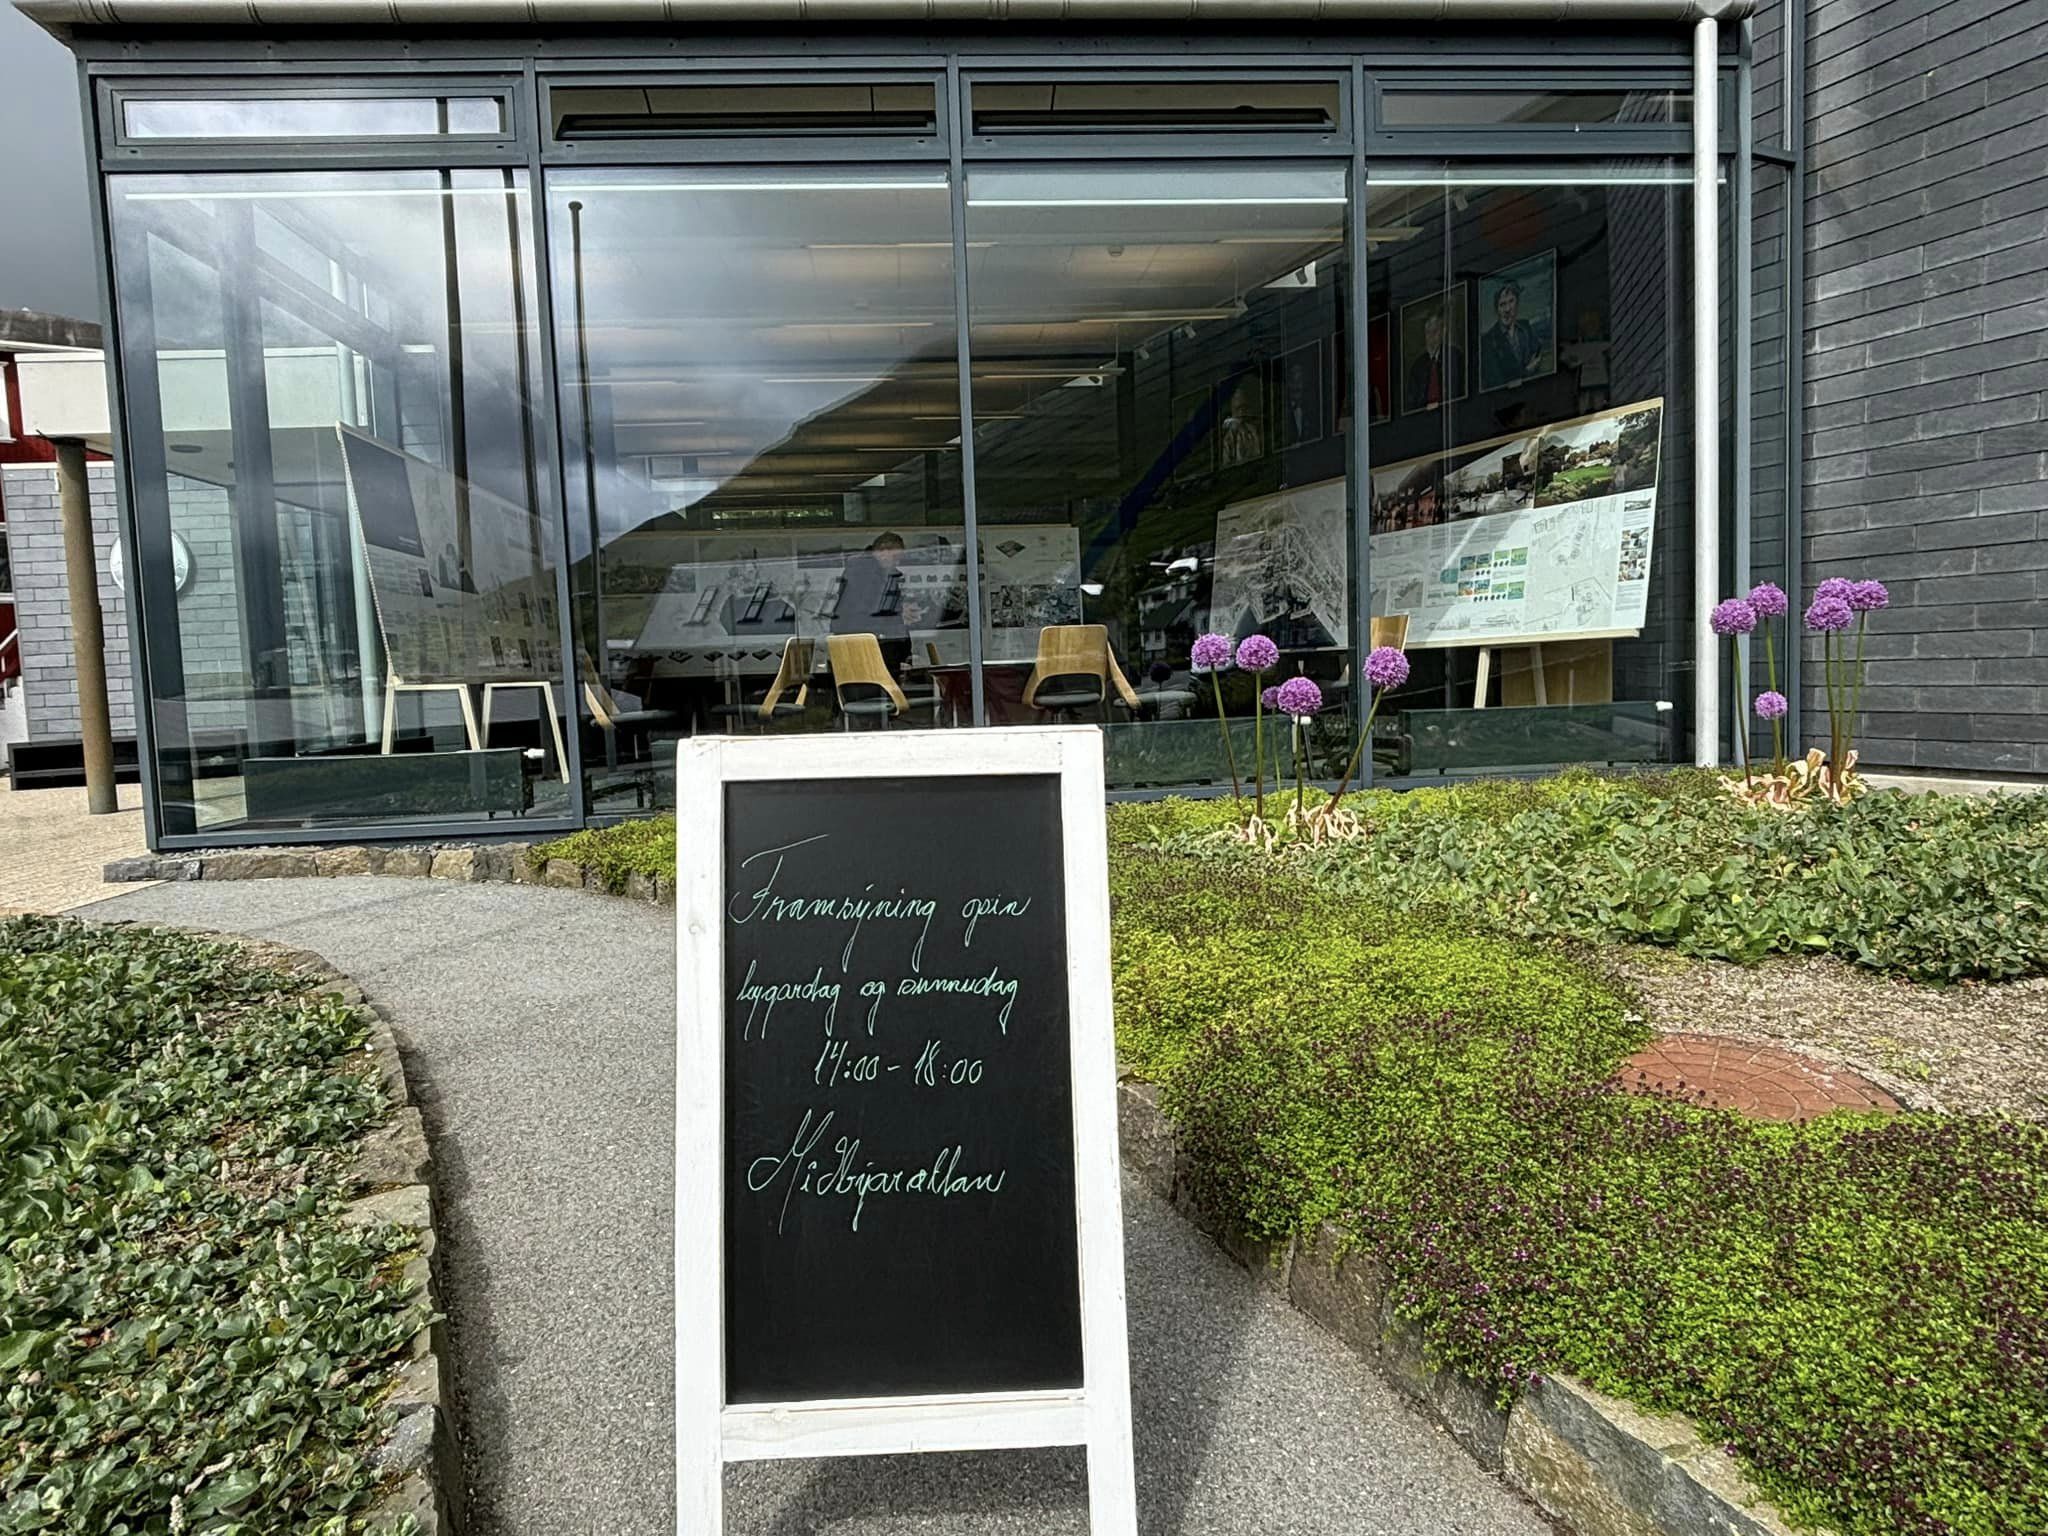 Framsýning opin
leygardag og sunnudag
14:00 - 18:00
Miðbjarætlan